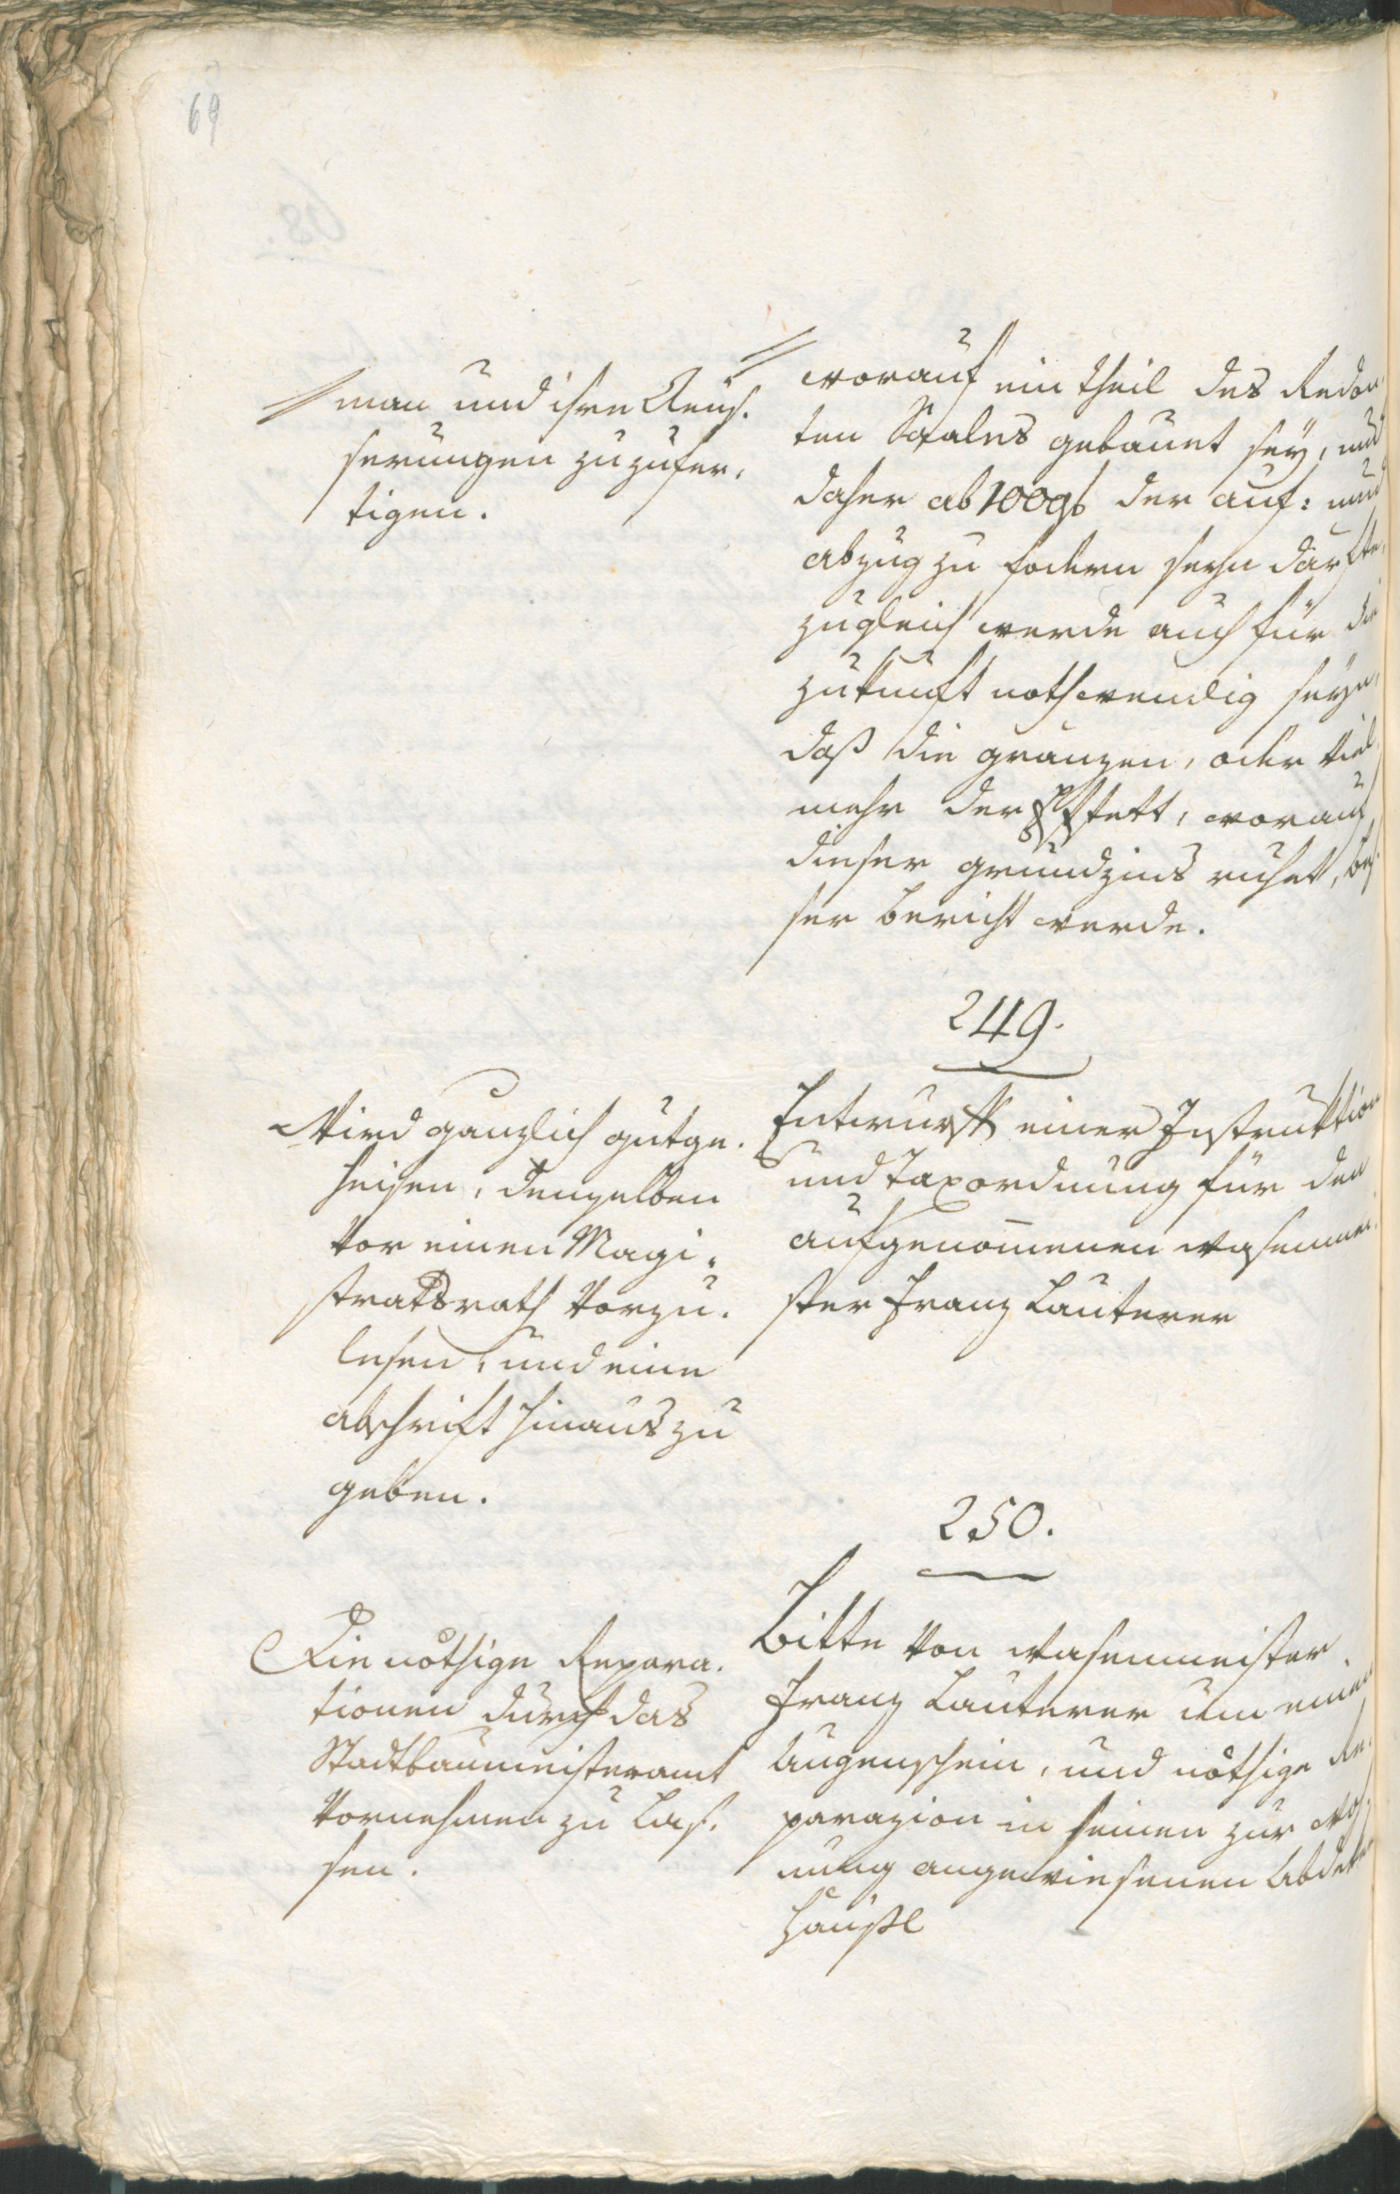 69
man und ihre Aeuß.
serungen zuzufer,
tigen.
worauf ein theil des Redou
ten Saales gebauet sey, und
daher ab 100 f der auf: und
abzug zu fodern seyn därfte,
zugleich werde auch für die
zukunft nothwendig seyn,
daß die gränzen, oder viel
mehr der stett, worauf
dieser grundzins ruhet, bes
ser bericht werde.
249.
Wird gänzlich gutge.
heisen, denselben
vor einen Magi,
stratsrath vorzu.
lesen, und eine
abschrift hinaus zu
geben.
Entwurff einer Instruktion
und Taxordnung für den
aufgenom̅enen wasenmei
ster Franz Lauterer
250.
Die nöthige Repara.
tionen durch das
Stadtbaumeisteramt
vornehmen zu laß.
sen.
Bitte von wasenmeister
Franz Lauterer um einen
Augenschein, und nöthige Re,
parazion in seinen zur woh,
nung angewiesenen Abdeker
häusl